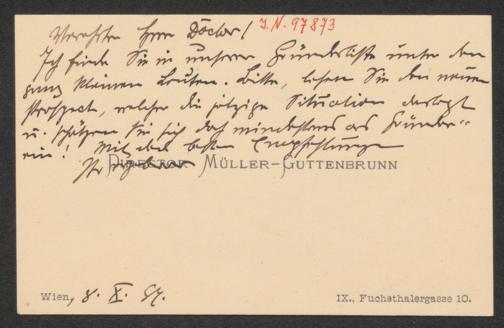 Verehrter Herr Doctor! I.N. 97873
Ich finde Sie in unserer Gründerliste unter den
ganz kleinen Leuten. Bitte, lesen Sie den neuen
Prospect, welcher die jetzige Situation darlegt
u. schätzen Sie sich doch mindestens als Gründer-
ein! Mit den besten Empfehlungen
Ihr ergebener
DIRECTOR MÜLLER-GUTTENBRUNN
Wien, 8. X. 97.
IX., Fuchsthalergasse 10.